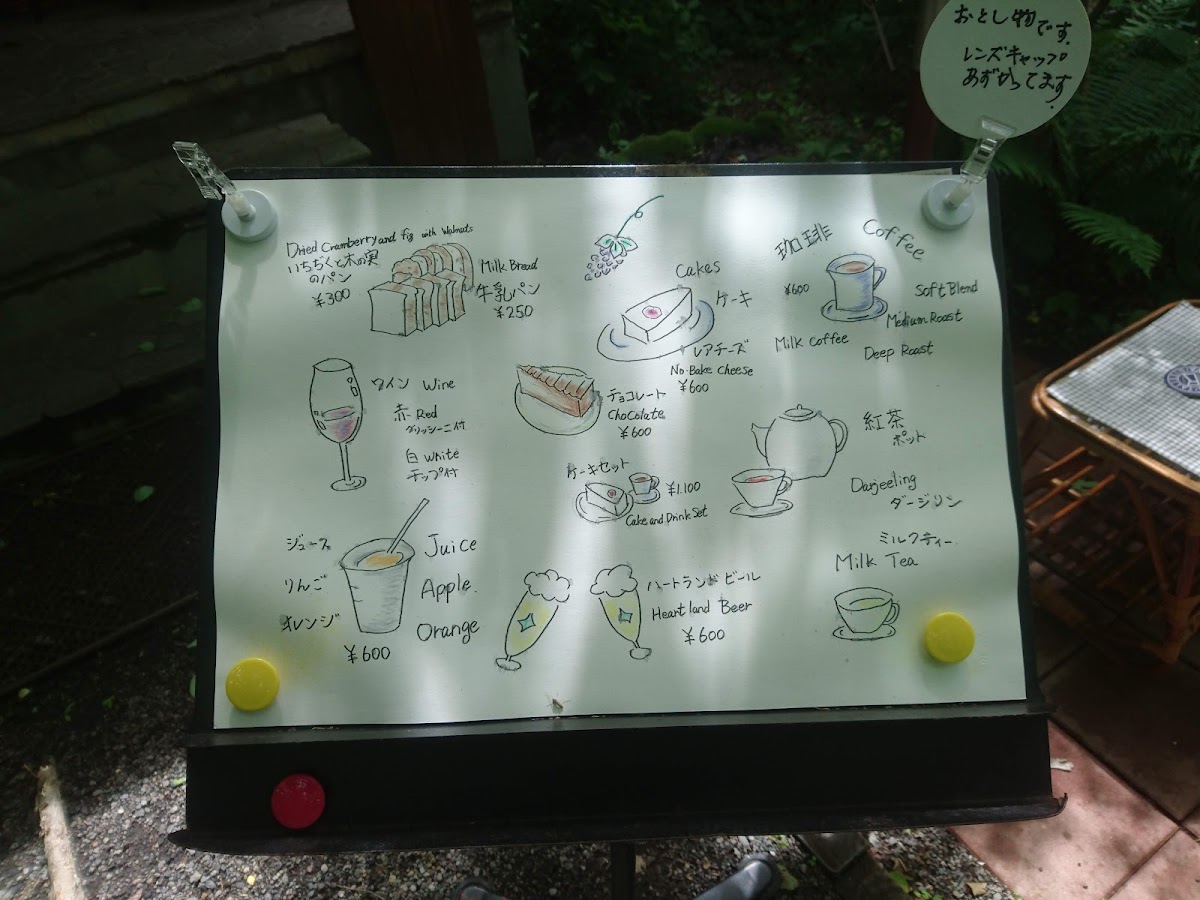 おとし物です.
レンズキャップ
あずかってます.
Dried Cramberry and fig with Walnuts
いちぢくと木の実
のパン
¥300
Milk Bread
牛乳パン
¥250
Cakes
ケーキ
レアチーズ
No-Bake Cheese
¥600
珈琲
Coffee
¥600
Soft Blend
Medium Roast
Milk Coffee
Deep Roast
ワイン Wine
赤 Red
グリッシーニ付
白 White
チップ付
チョコレート
Chocolate
¥600
ケーキセット
¥1.100
Cake and Drink Set
紅茶
ポット
Darjeeling
ダージリン
ミルクティー
Milk Tea
ジュース
Juice
りんご
Apple.
オレンジ
Orange
¥600
ハートランド ビール
Heartland Beer
¥600